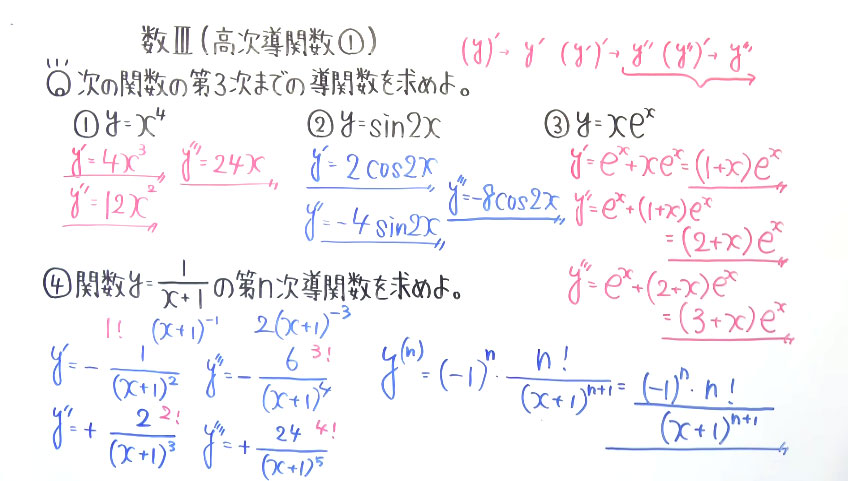 数Ⅲ(高次導関数①)
(y)'→ y' (y')'→ y'' (y'')'→ y'''
Q 次の関数の第3次までの導関数を求めよ。
① y=x⁴
y'=4x³ y'''=24x
y''=12x²
② y=sin2x
y'=2cos2x
y''=-4sin2x y'''=-8cos2x
③ y=xeˣ
y'=eˣ+xeˣ=(1+x)eˣ
y''=eˣ+(1+x)eˣ
=(2+x)eˣ
y'''=eˣ+(2+x)eˣ
=(3+x)eˣ
④ 関数y=1/(x+1)の第n次導関数を求めよ。
1! (x+1)⁻¹ 2(x+1)⁻³
y'=-1/(x+1)² y'''=-6/(x+1)⁴ 3!
y''=+2/(x+1)³ 2! y''''=+24/(x+1)⁵ 4!
y⁽ⁿ⁾=(-1)ⁿ·n!/(x+1)ⁿ⁺¹=(-1)ⁿ·n!/(x+1)ⁿ⁺¹